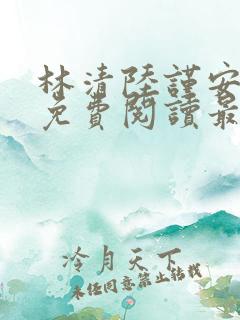 林清陸謹安
免費閱讀最
冷月天下
未经同意禁止转载